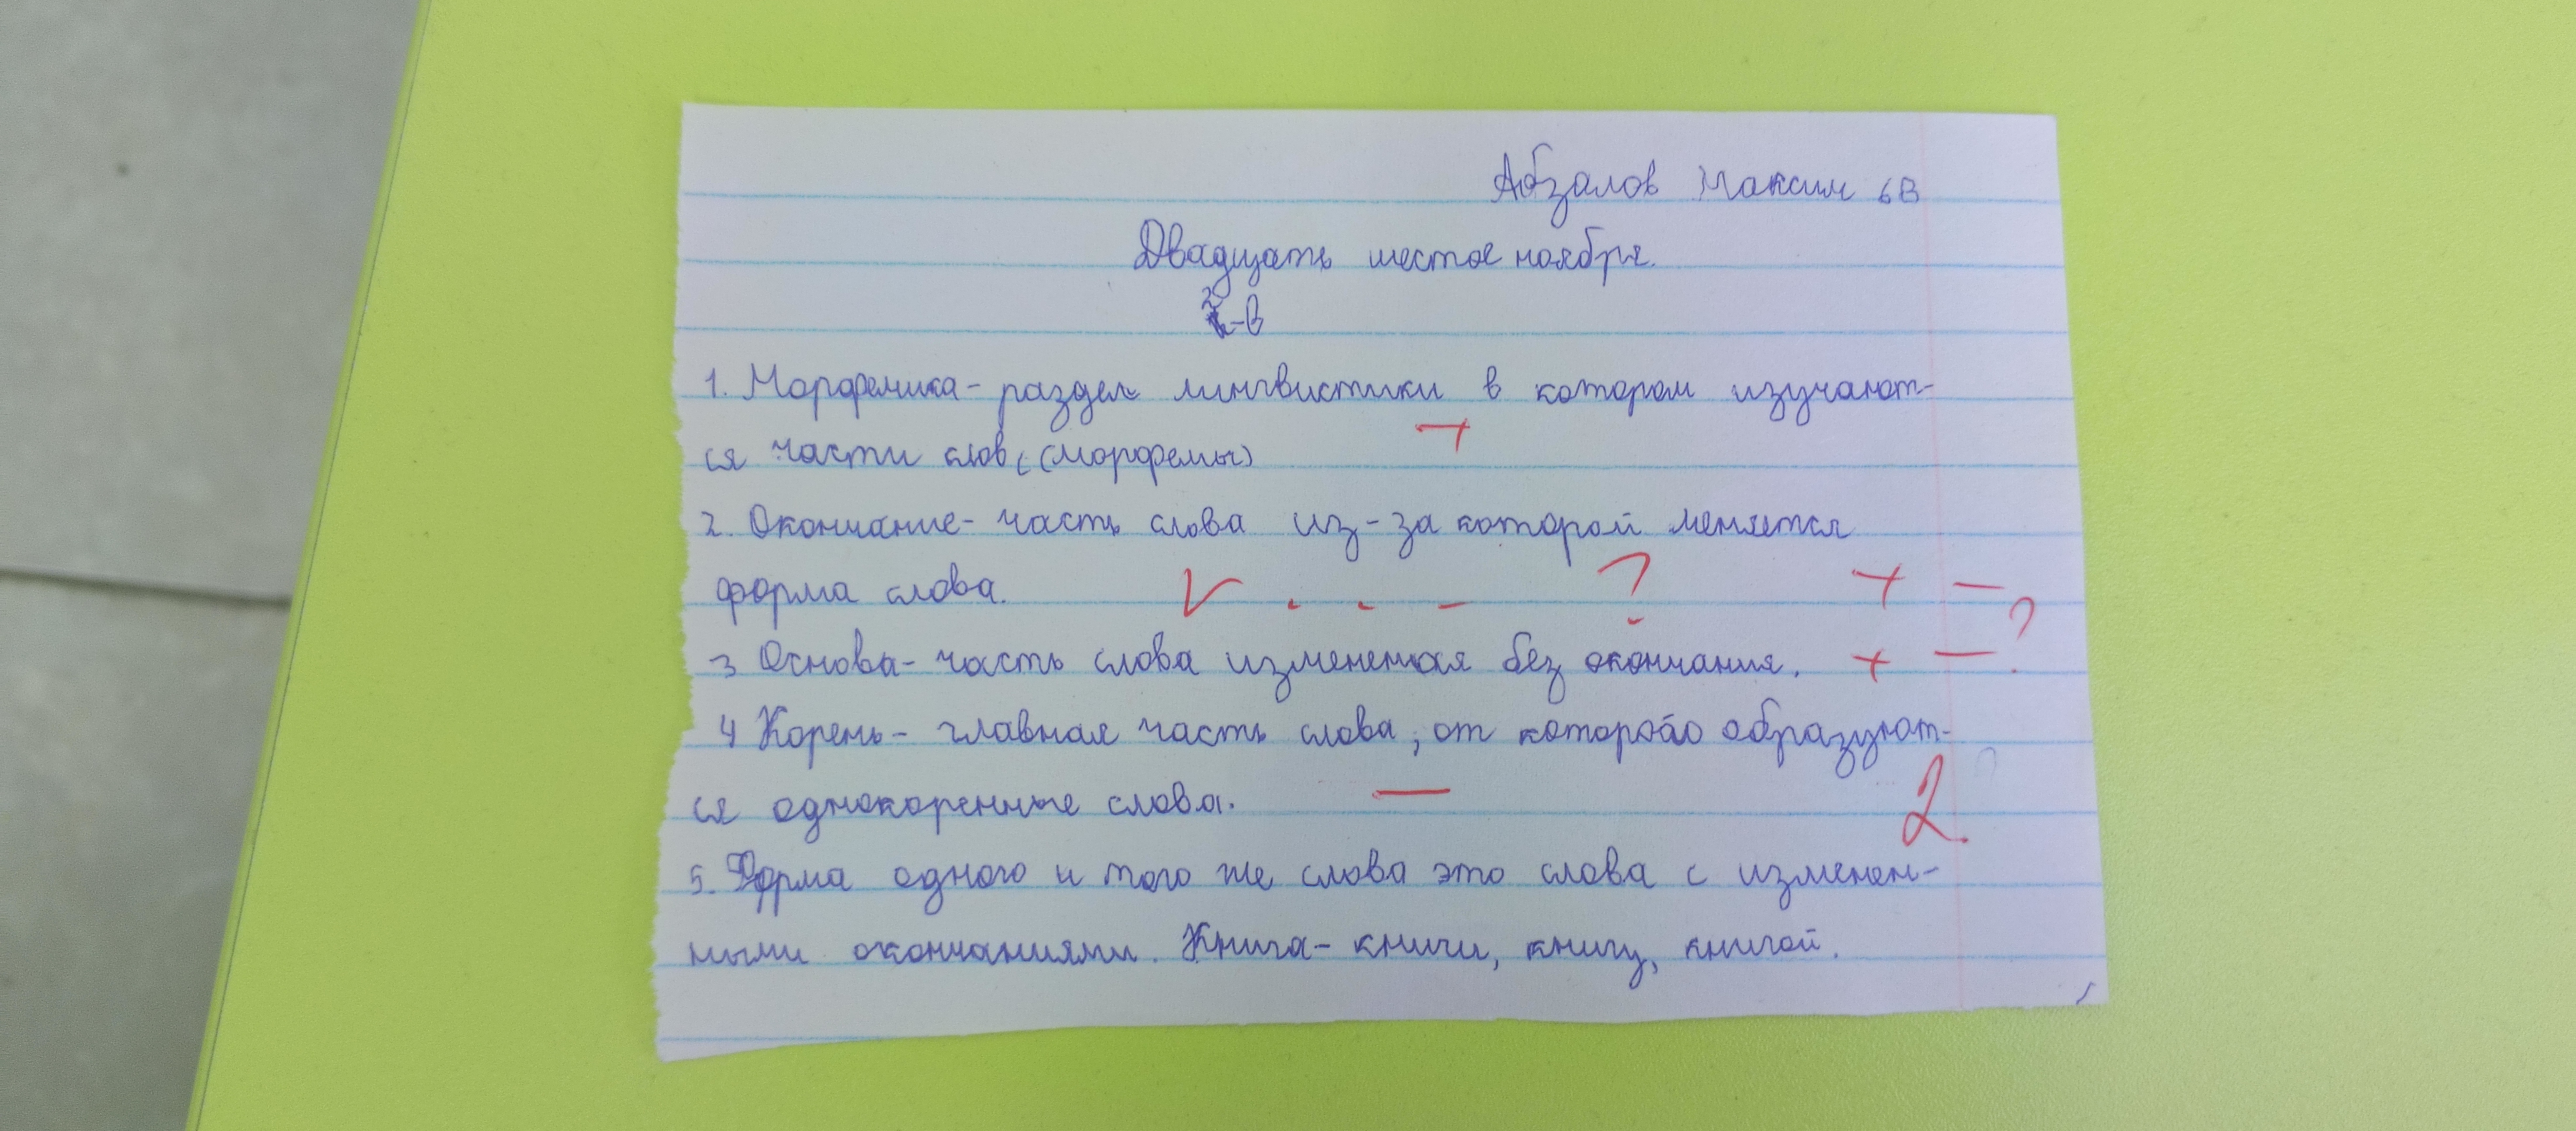 Абзалов Максим 6В
Двадцать шестое ноября.
2-в
1. Морфемика- раздел лингвистики в котором изучают-
ся части слов (морфемы)
2. Окончание- часть слова из-за которой меняется
форма слова. V . . - ? + -
3 Основа- часть слова измененая без окончания. + - ?
4 Корень- главная часть слова, от которо образуют-
ся однокоренные слова. - 2
5. Форма одного и того же слова это слова с изменен-
ными окончаниями. Книга- книги, книгу, книгой.